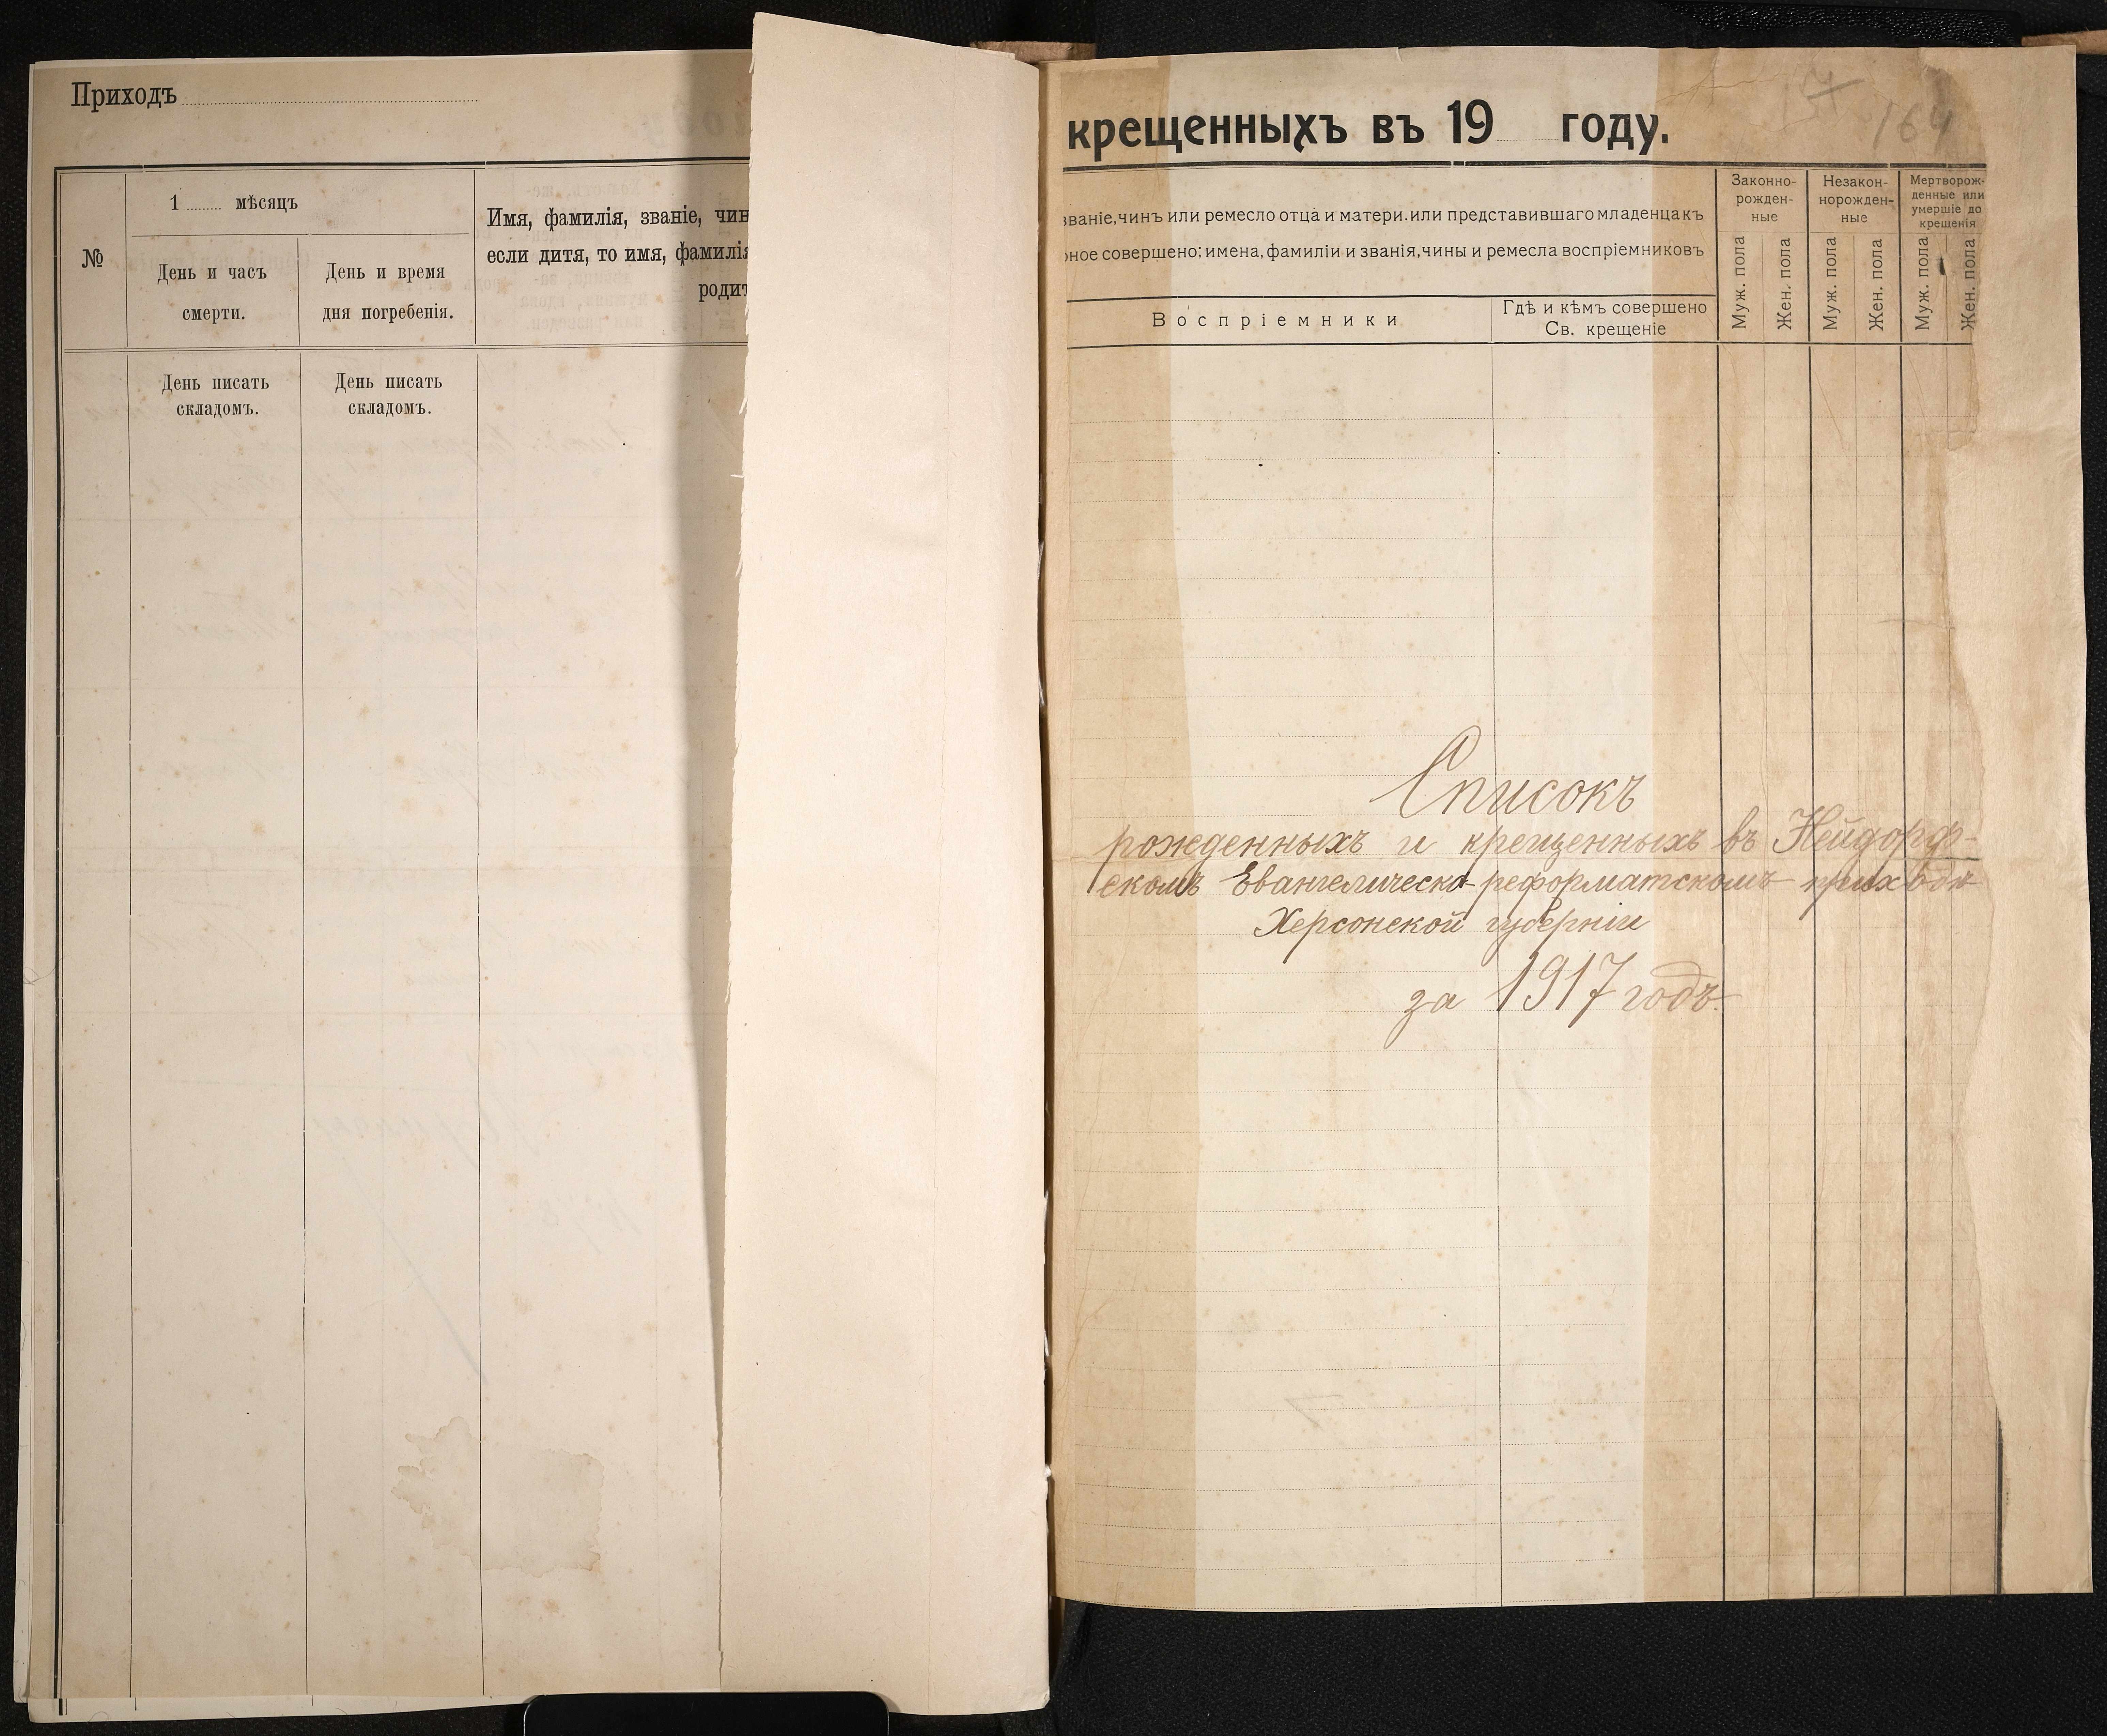 Приходъ
1 мѣсяцъ
№
День и часъ
смерти.
День и время
дня погребенія.
Имя, фамилія, званіе, чин
если дитя, то имя, фамилія
родит
День писать
складомъ.
День писать
складомъ.
164
крещенныхъ въ 19 году.
званіе, чинъ или ремесло отца и матери. или представившаго младенца къ
ное совершено; имена, фамиліи и званія, чины и ремесла воспріемниковъ
Воспріемники
Гдѣ и кѣмъ совершено
Св. крещеніе
Законно-
рожден-
ные
Незакон-
норожден-
ные
Мертворож-
денные или
умершіе до
крещенія
Муж. пола
Жен. пола
Муж. пола
Жен. пола
Муж. пола
Жен. пола
Списокъ
рожденныхъ и крещенныхъ въ Нейдорф-
скомъ Евангелическо-реформатскомъ приходѣ
Херсонской губерніи
за 1917 годъ.